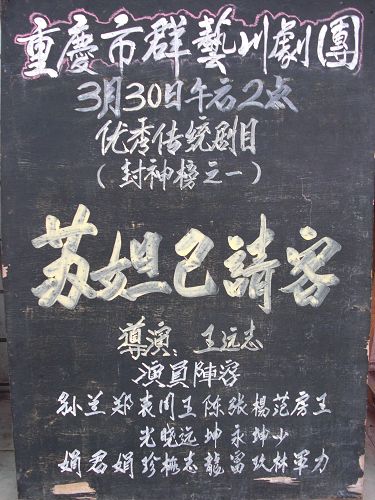 重慶市群藝川劇團
3月30日午后2点
优秀传统剧目
(封神榜之一)
苏妲己請客
導演:王远志
演員陣容
孙兰郑袁周王陈張楊范房王
光晓远坤永坤少
娟君娟珍梅志龍富玖林军力